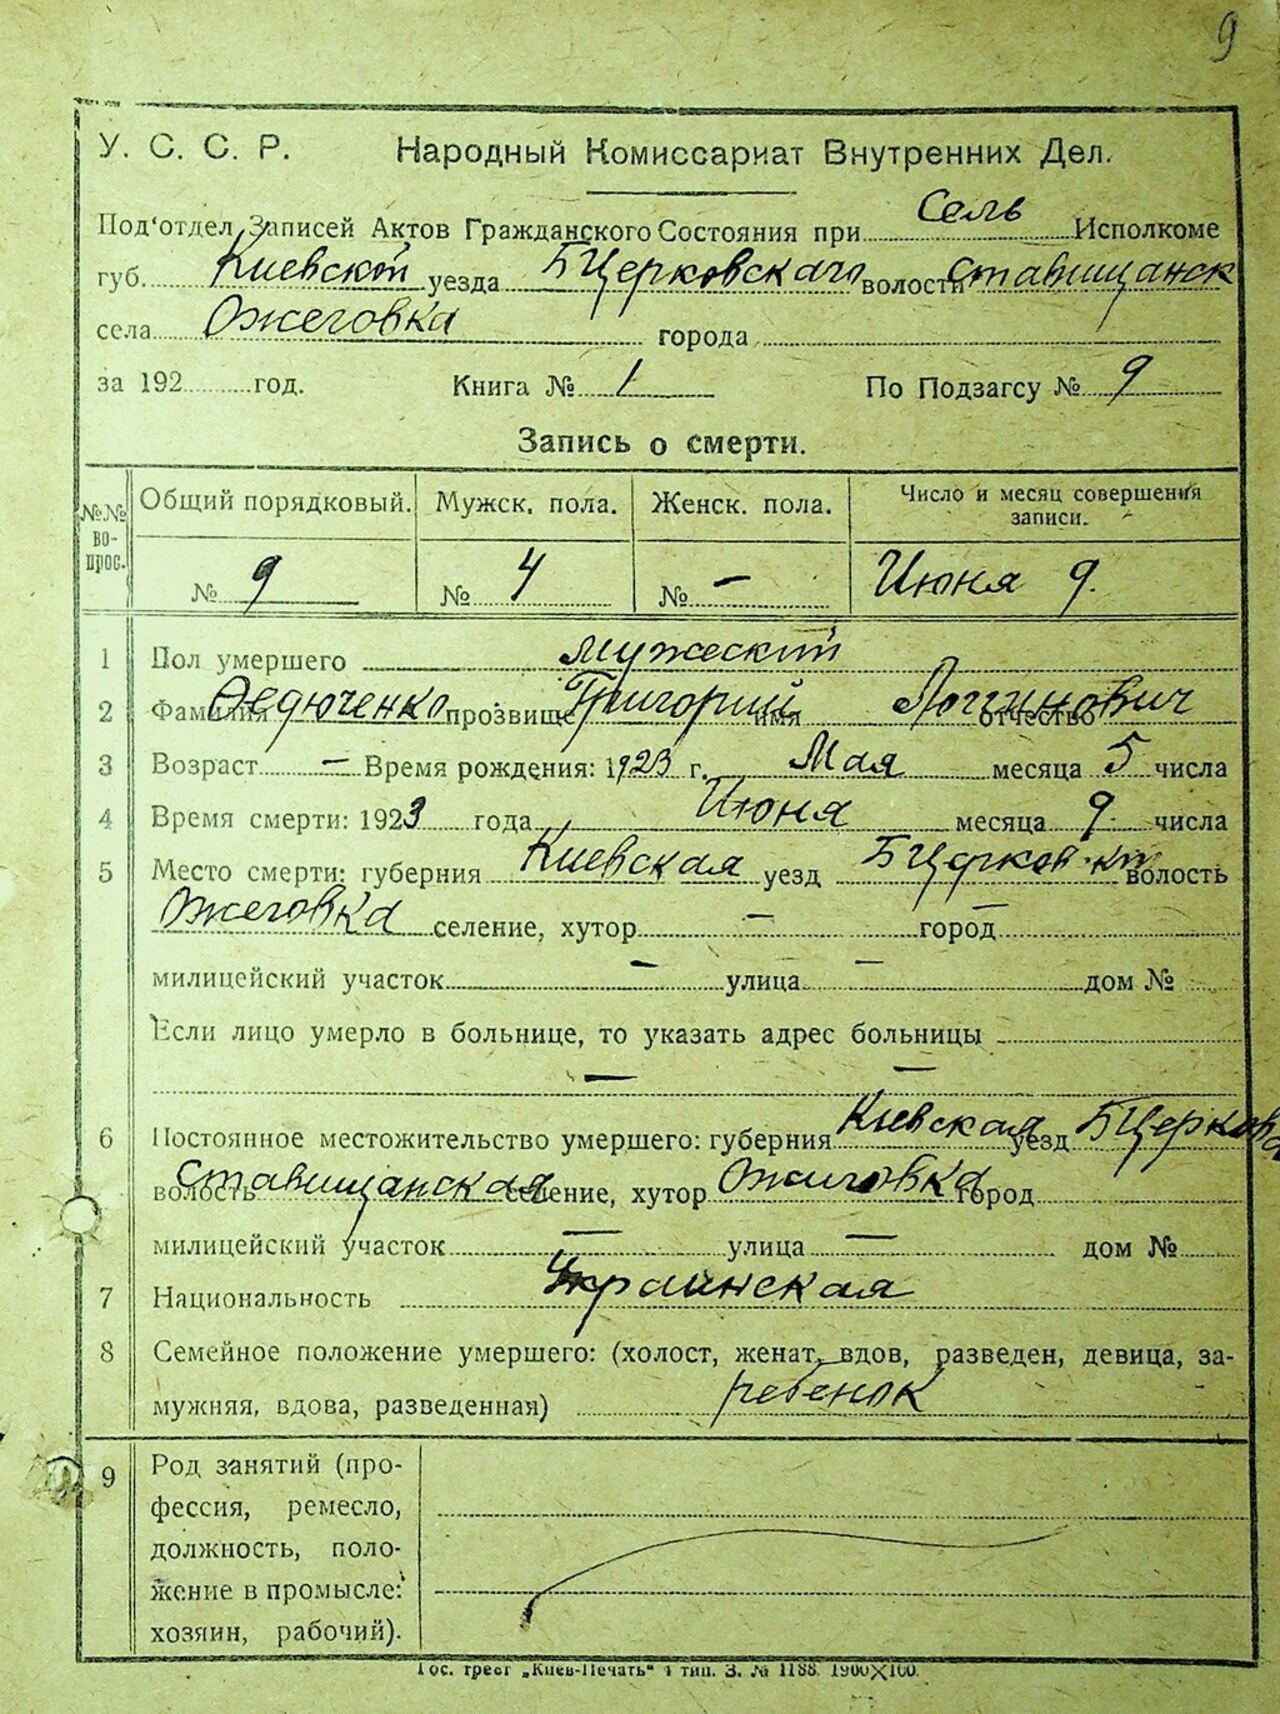 9
У. С. С. Р. Народный Комиссариат Внутренних Дел.
Под'отдел Записей Актов Гражданского Состояния при Сель Исполкоме
губ. Киевской уезда БЦерковского волости Ставищанск
села Ожеговка города
за 192 год. Книга № 1 По Подзагсу № 9
Запись о смерти.
№№ вопрос. Общий порядковый. Мужск. пола. Женск. пола. Число и месяц совершения записи.
№ 9 № 4 № — Июня 9.
1 Пол умершего мужеский
2 Фамилия Федюченко прозвище Григорий имя Логгинович отчество
3 Возраст — Время рождения: 1923 г. Мая месяца 5 числа
4 Время смерти: 1923 года Июня месяца 9 числа
5 Место смерти: губерния Киевская уезд БЦерков волость
Ожеговка селение, хутор — город —
милицейский участок — улица — дом №
Если лицо умерло в больнице, то указать адрес больницы —
—
6 Постоянное местожительство умершего: губерния Киевская уезд БЦерков
волость Ставищанская селение, хутор Ожиговка город
милицейский участок — улица — дом №
7 Национальность Украинская
8 Семейное положение умершего: (холост, женат, вдов, разведен, девица, за-
мужняя, вдова, разведенная) ребенок
9 Род занятий (про-
фессия, ремесло,
должность, поло-
жение в промысле:
хозяин, рабочий).
Гос. трест „Киев-Печать“ 4 тип. З. № 1188. 1900×100.